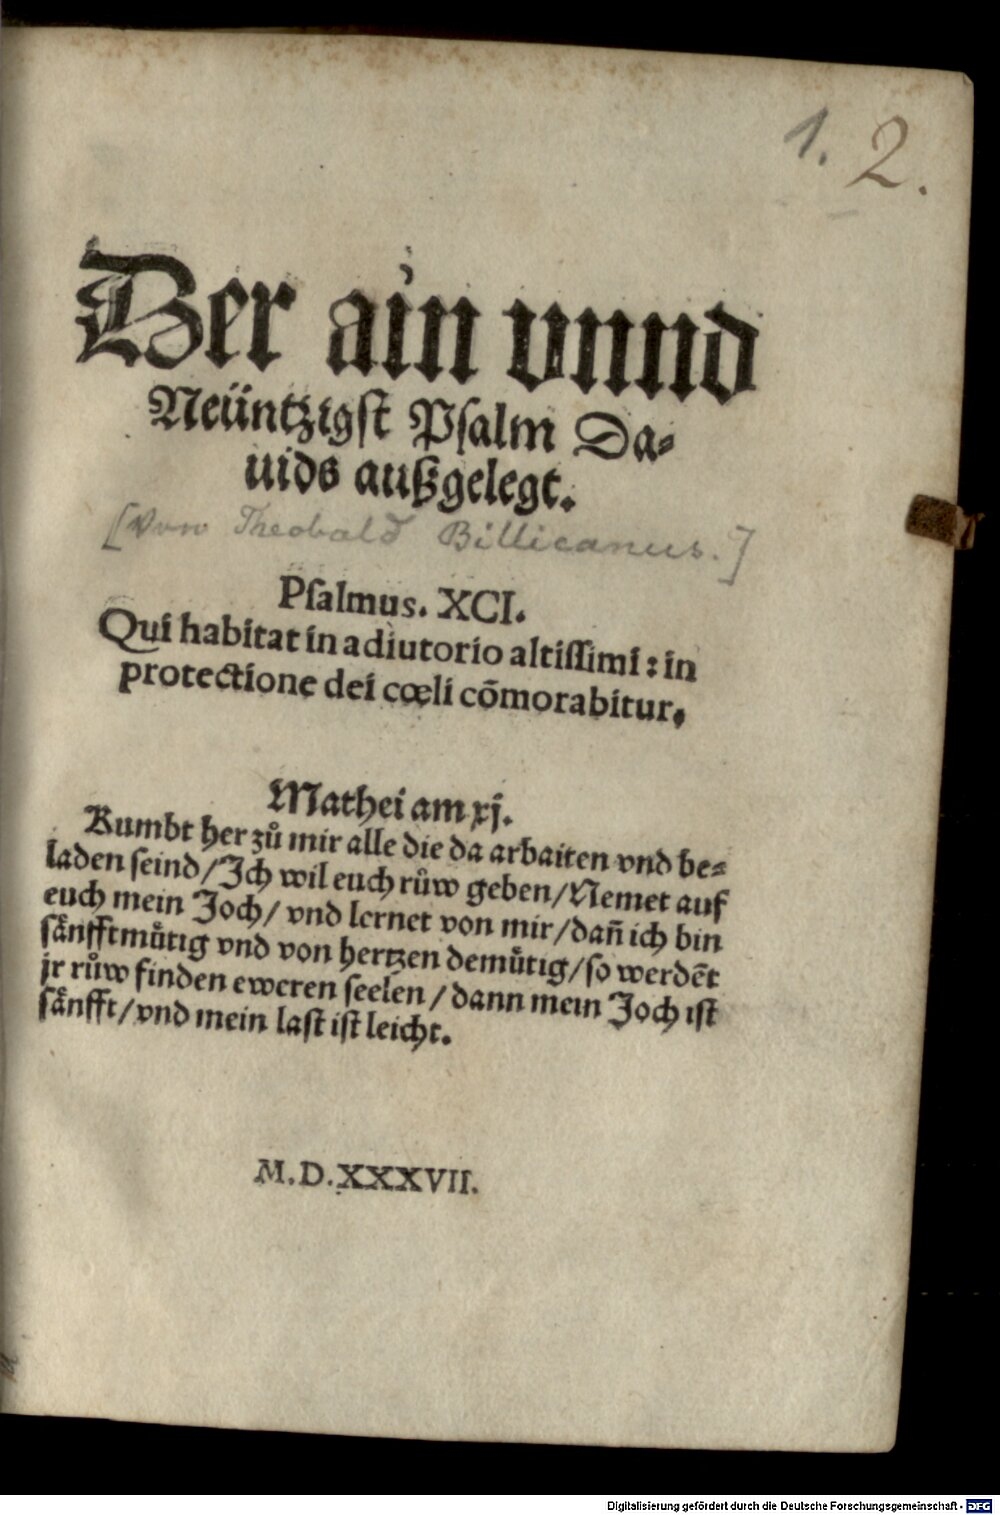 1. 2.
Der ain vnnd
Neüntzigst Psalm Da⸗
uids außgelegt.
[Von Theobald Billicanus.]
Psalmus. XCI.
Qui habitat in adiutorio altissimi : in
protectione dei cœli cōmorabitur.
Mathei am xj.
Kumbt her zů mir alle die da arbaiten vnd be⸗
laden seind/Ich wil euch růw geben/Nemet auf
euch mein Joch/ vnd lernet von mir/dañ ich bin
sånfftmůtig vnd von hertzen demůtig/so werdẽt
jr růw finden eweren seelen/dann mein Joch ist
sånfft/vnd mein last ist leicht.
M.D.XXXVII.
Digitalisierung gefördert durch die Deutsche Forschungsgemeinschaft - DFG